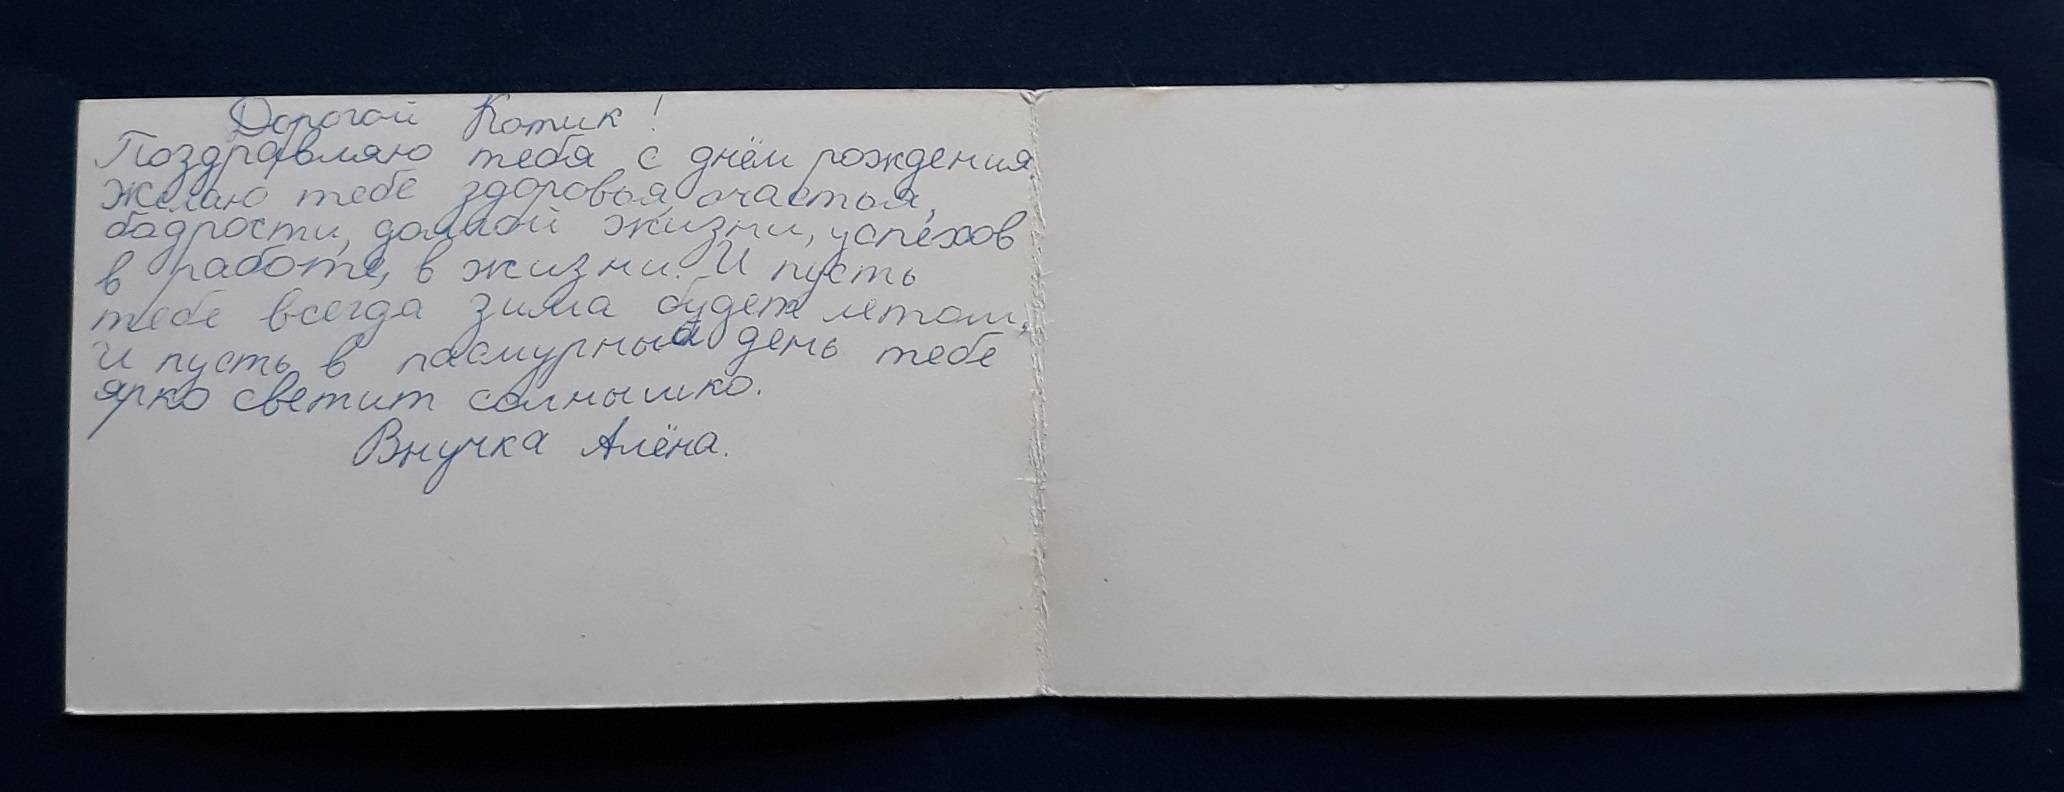 Дорогой Котик!
Поздравляю тебя с днём рождения.
Желаю тебе здоровья, счастья,
бодрости, долгой жизни, успехов
в работе, в жизни. И пусть
тебе всегда зима будет летом,
И пусть в пасмурный день тебе
ярко светит солнышко.
Внучка Алёна.